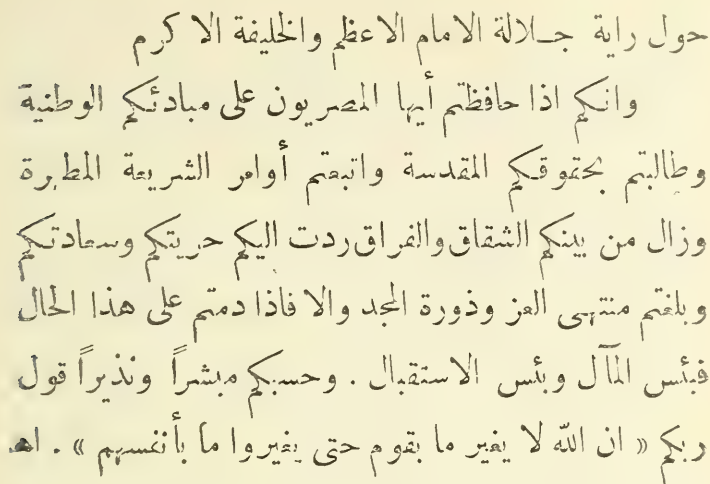 حول راية جـلالة الامام الاعظم والخليفة الاكرم
وانكم اذا حافظتم أيها المصريون على مبادئكم الوطنية
وطالبتم بحقوقكم المقدسة واتبعتم أوامر الشريعة المطهرة
وزال من بينكم الشقاق والفراق ردت اليكم حريتكم وسعادتكم
وبلغتم منتهى العز وذورة المجد والا فاذا دمتم على هذا الحال
فبئس المآل وبئس الاستقبال . وحسبكم مبشراً ونذيراً قول
ربكم « ان الله لا يغير ما بقوم حتى يغيروا ما بأنفسهم » . اهـ